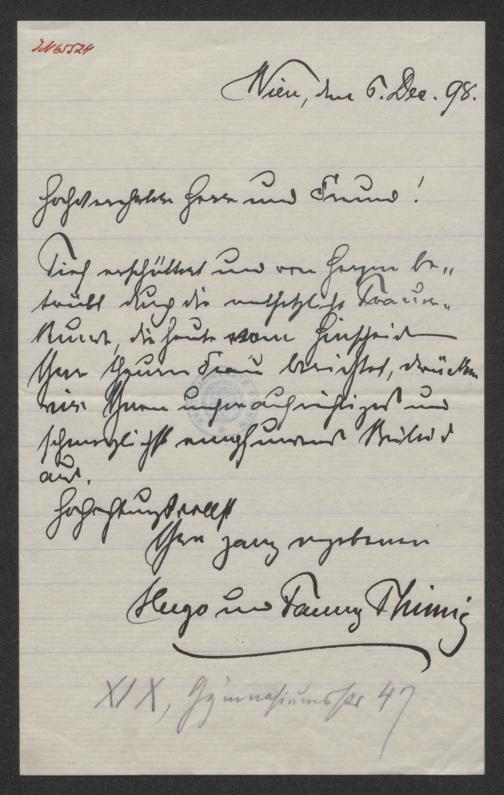 IN 65524
Wien, den 6. Dec. 98.
Hochverehrter Herr und Freund!
Tief erschüttert und von Herzen be„
trübt durch die entsetzliche Trauer„
Kunde, die heute vom Hinscheiden
Ihrer theuren Frau berichtet, drücken
wir Ihnen unser aufrichtiges und
schmerzlichst empfundenes Beileid
aus.
Hochachtungsvollst
Ihre ganz ergebenen
Hugo und Fanny Thimig
XIX, Gymnasiumstr 47